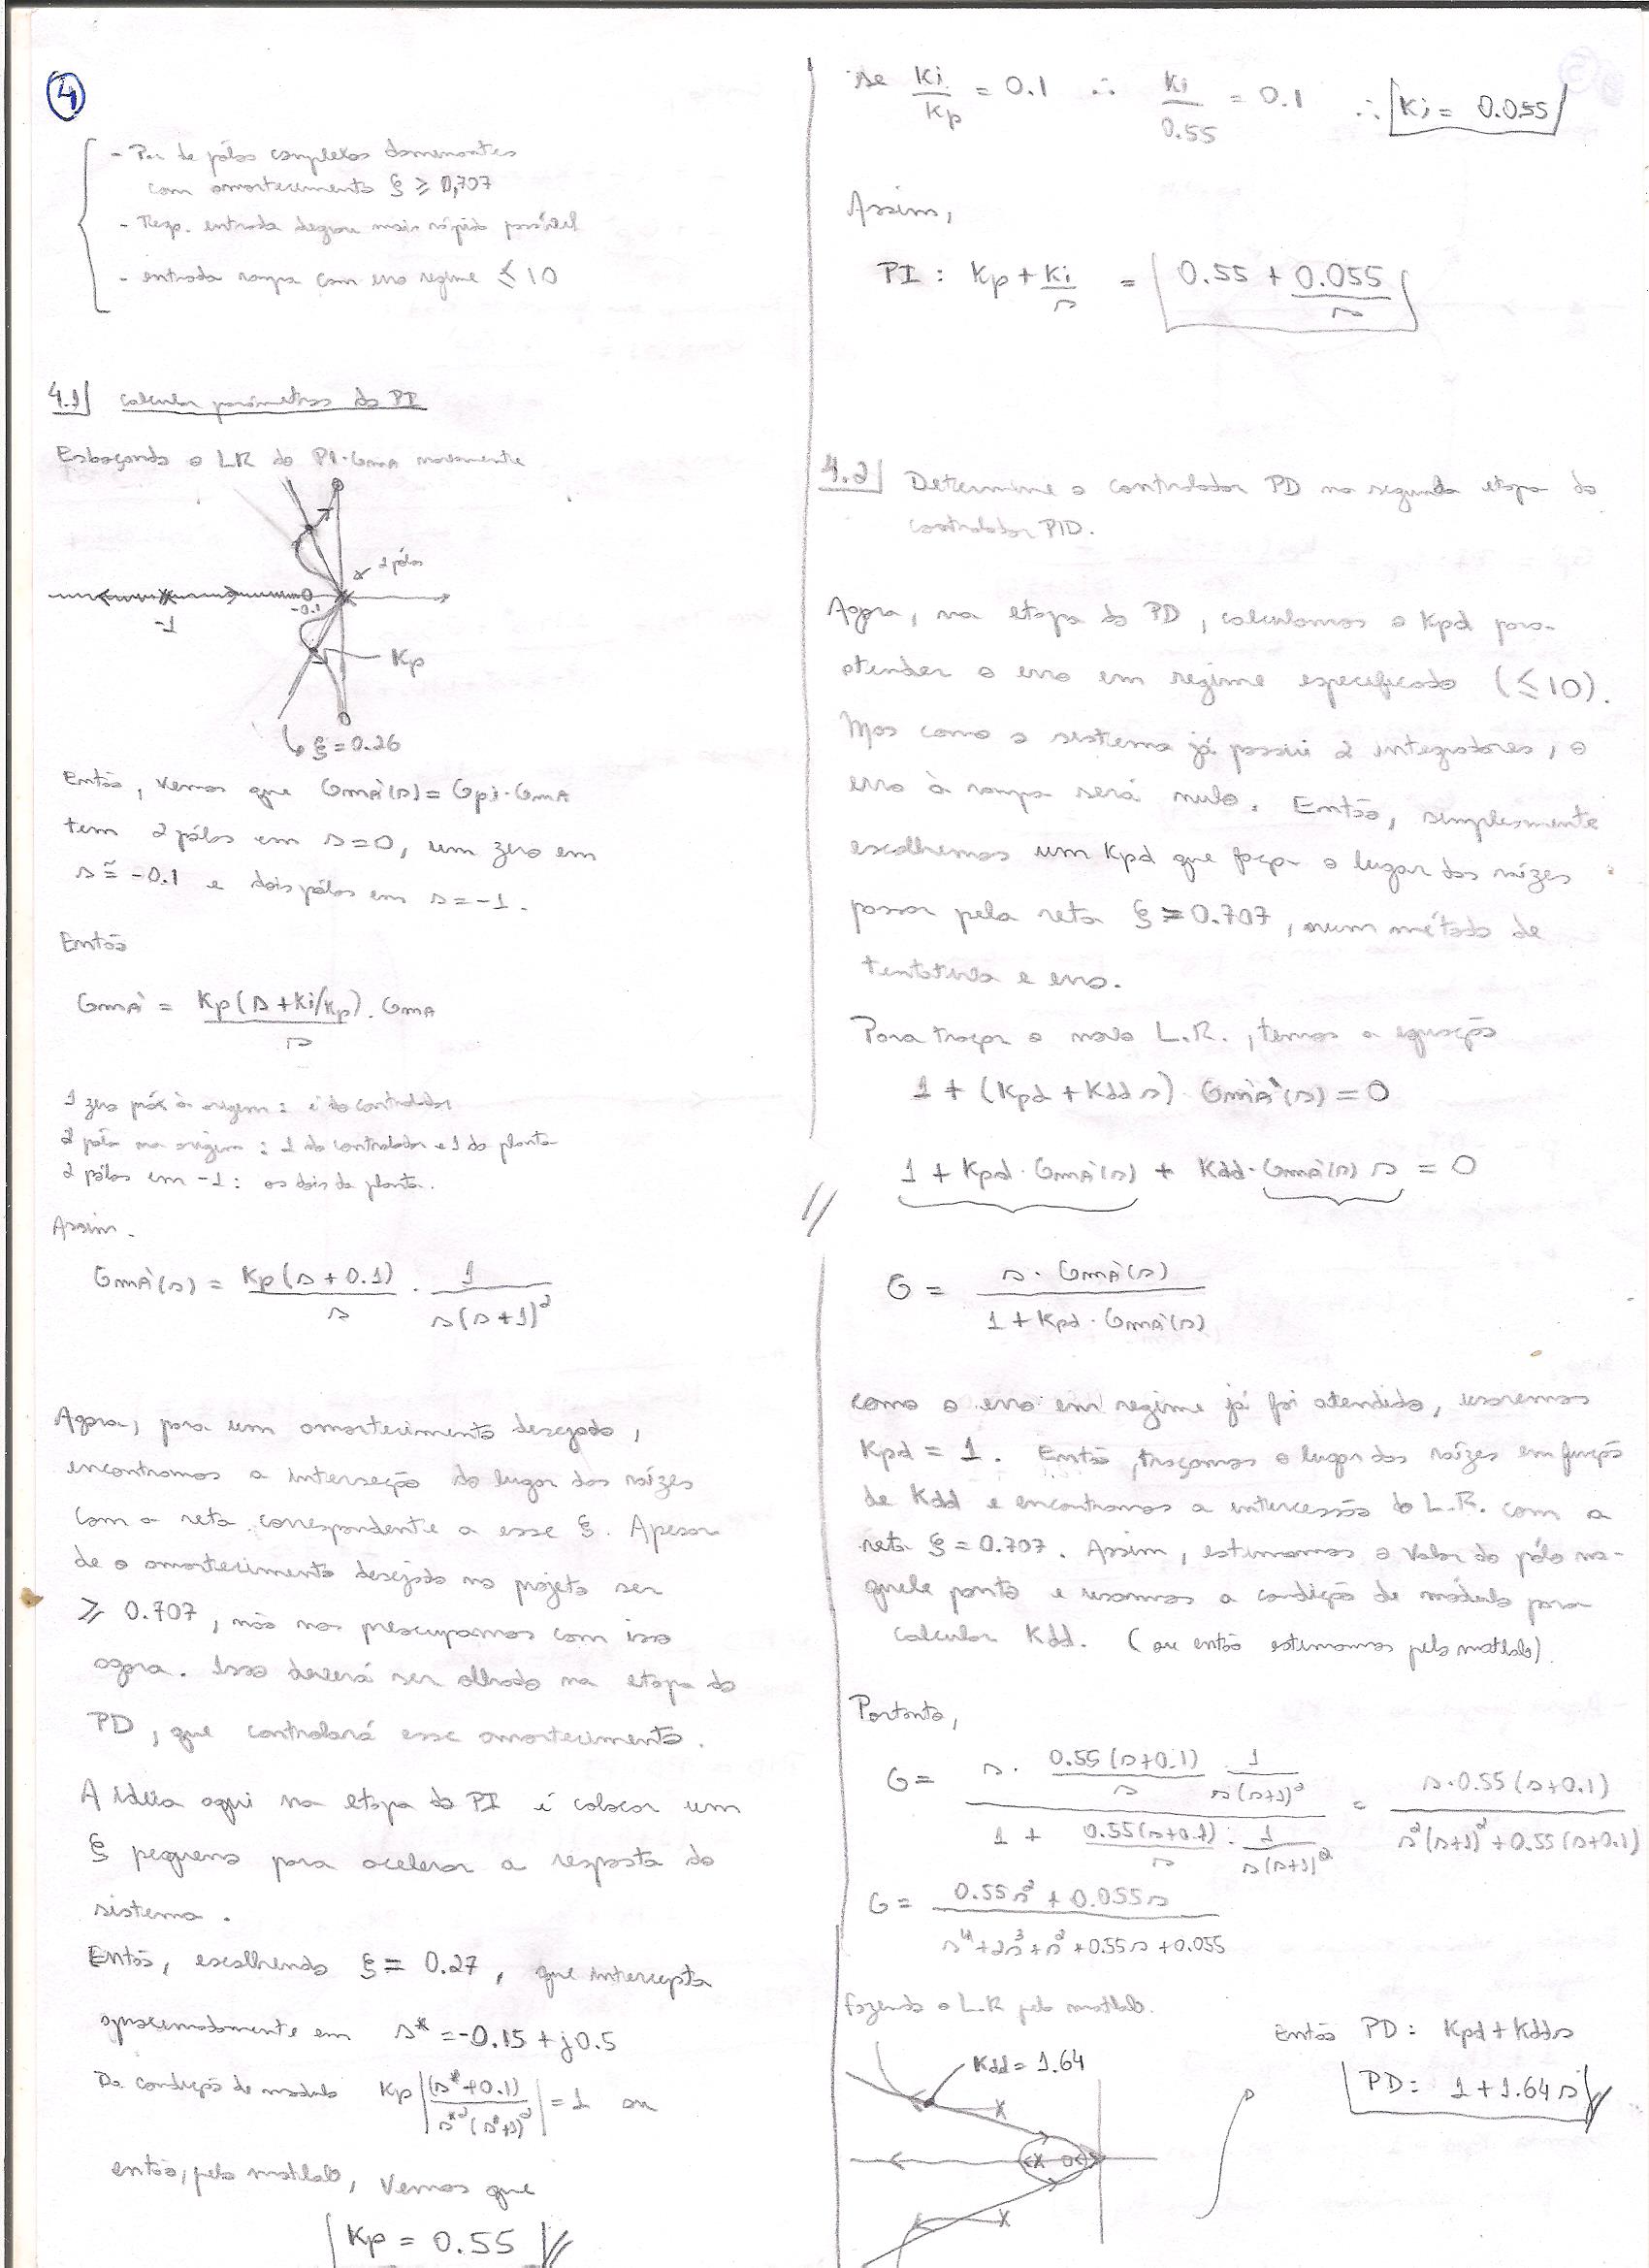 4
- Par de pólos complexos dominantes
com amortecimento ξ ≥ 0,707
- Resp. entrada degrau mais rápida possível
- entrada rampa com erro regime ≤ 10
4.1 Calcular parâmetros do PI
Esboçando o LR do PI·GMA novamente
2 pólos
-0.1
-1
Kp
ξ = 0.26
Então, vemos que GMA'(s) = Gpi·GMA
tem 2 pólos em s=0, um zero em
s ≅ -0.1 e dois pólos em s = -1.
Então
GMA' = Kp(s + Ki/Kp) . GMA
s
1 zero próx à origem: é do controlador
2 pólos na origem: 1 do controlador e 1 da planta
2 pólos em -1: os dois da planta.
Assim.
GMA'(s) = Kp(s + 0.1) . 1
s s(s+1)²
Agora, para um amortecimento desejado,
encontramos a interseção do lugar das raízes
com a reta correspondente a esse ξ. Apesar
de o amortecimento desejado no projeto ser
≥ 0.707, não nos preocupamos com isso
agora. Isso deverá ser olhado na etapa do
PD, que controlará esse amortecimento.
A idéia aqui na etapa do PI é colocar um
ξ pequeno para acelerar a resposta do
sistema.
Então, escolhendo ξ = 0.27, que intercepta
aproximadamente em s* = -0.15 + j0.5
Da condição de módulo Kp |(s*+0.1) / s*²(s*+1)²| = 1 ou
então, pelo matlab, vemos que
Kp = 0.55
se Ki/Kp = 0.1 ∴ Ki/0.55 = 0.1 ∴ Ki = 0.055
Assim,
PI: Kp + Ki/s = 0.55 + 0.055/s
4.2 Determine o controlador PD na segunda etapa do
controlador PID.
Agora, na etapa do PD, calculamos o Kpd para
atender o erro em regime especificado (≤ 10).
Mas como o sistema já possui 2 integradores, o
erro à rampa será nulo. Então, simplesmente
escolhemos um Kpd que faça o lugar das raízes
passar pela reta ξ = 0.707, num método de
tentativa e erro.
Para traçar o novo L.R., temos a equação
1 + (Kpd + Kdd s) GMA'(s) = 0
1 + Kpd · GMA'(s) + Kdd · GMA'(s) s = 0
G = s · GMA'(s)
1 + Kpd · GMA'(s)
como o erro em regime já foi atendido, usaremos
Kpd = 1. Então, traçamos o lugar das raízes em função
de Kdd e encontramos a intercessão do L.R. com a
reta ξ = 0.707. Assim, estimamos o valor do pólo na-
quele ponto e usamos a condição de módulo para
calcular Kdd. (ou então estimamos pelo matlab).
Portanto,
G = s · 0.55(s+0.1)/s · 1/s(s+1)² = s·0.55(s+0.1)
1 + 0.55(s+0.1)/s · 1/s(s+1)² s²(s+1)² + 0.55(s+0.1)
G = 0.55s² + 0.055s
s⁴ + 2s³ + s² + 0.55s + 0.055
fazendo o L.R pelo matlab.
Kdd = 1.64
Então PD: Kpd + Kdds
PD: 1 + 1.64s